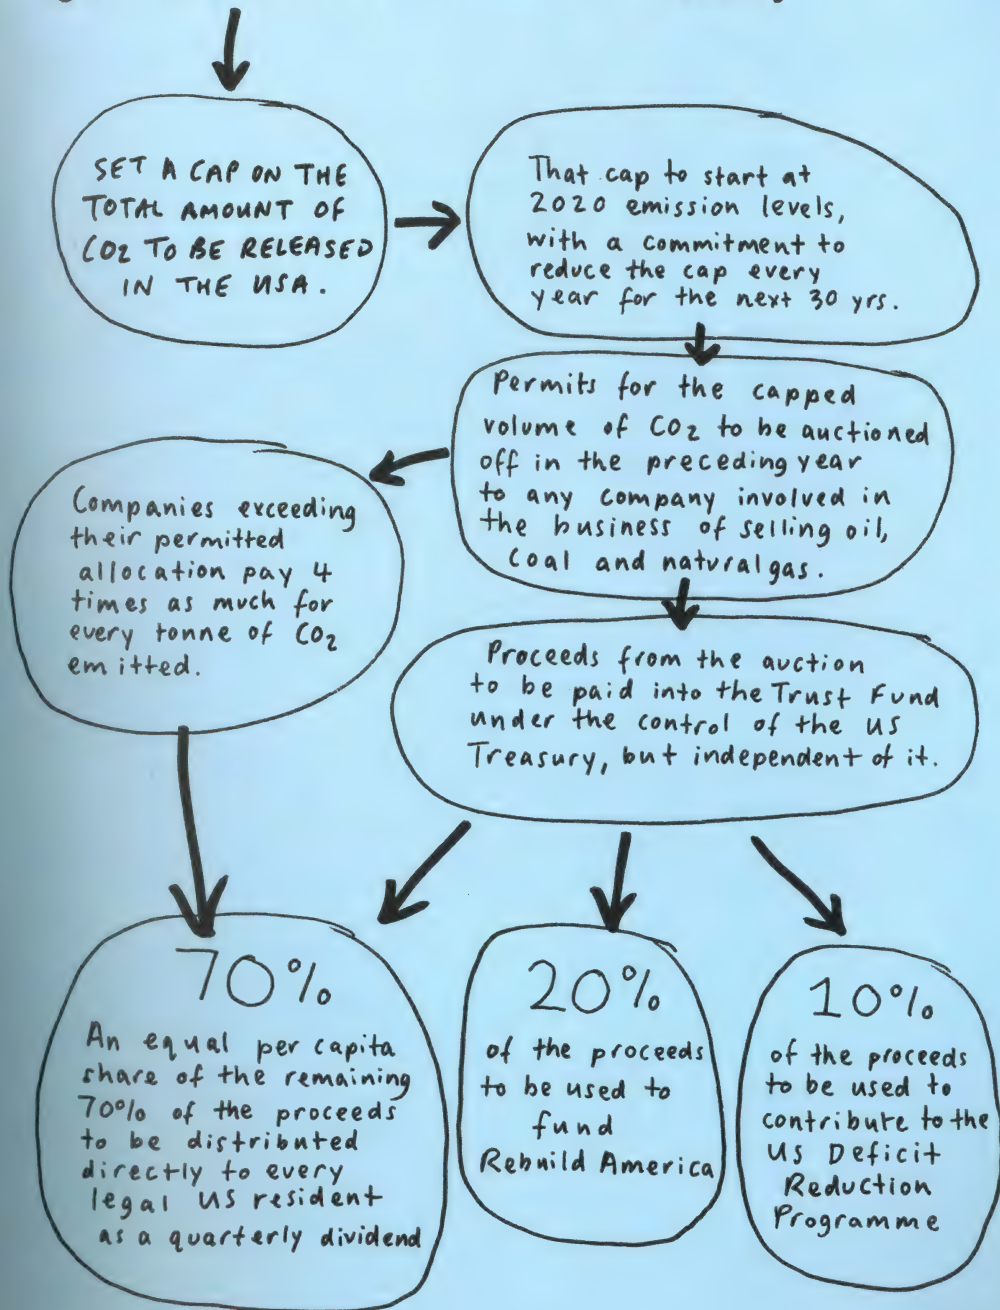 SET A CAP ON THE
TOTAL AMOUNT OF
CO2 TO BE RELEASED
IN THE USA.
That cap to start at
2020 emission levels,
with a commitment to
reduce the cap every
year for the next 30 yrs.
Permits for the capped
volume of CO2 to be auctioned
off in the preceding year
to any company involved in
the business of selling oil,
coal and natural gas.
Companies exceeding
their permitted
allocation pay 4
times as much for
every tonne of CO2
emitted.
Proceeds from the auction
to be paid into the Trust Fund
under the control of the US
Treasury, but independent of it.
70%
An equal per capita
share of the remaining
70% of the proceeds
to be distributed
directly to every
legal US resident
as a quarterly dividend
20%
of the proceeds
to be used to
fund
Rebuild America
10%
of the proceeds
to be used to
contribute to the
US Deficit
Reduction
Programme